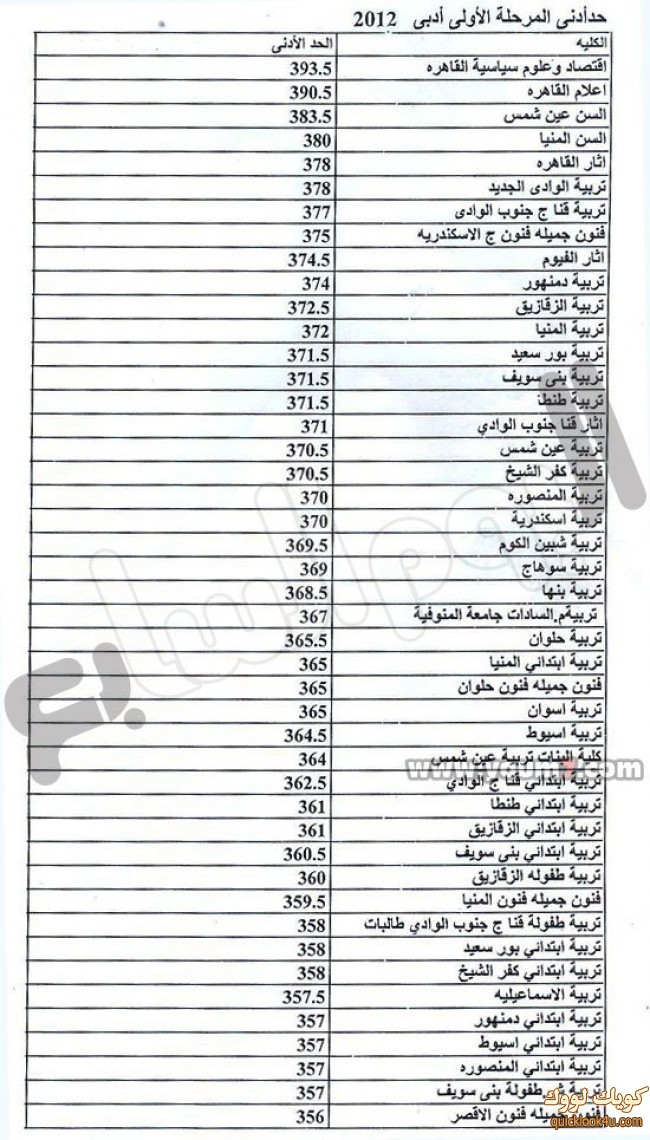 حدأدنى المرحلة الأولى أدبى 2012
الكليه الحد الأدنى
اقتصاد وعلوم سياسية القاهره 393.5
اعلام القاهره 390.5
السن عين شمس 383.5
السن المنيا 380
اثار القاهره 378
تربية الوادى الجديد 378
تربية قنا ج جنوب الوادى 377
فنون جميله فنون ج الاسكندريه 375
اثار الفيوم 374.5
تربية دمنهور 374
تربية الزقازيق 372.5
تربية المنيا 372
تربية بور سعيد 371.5
تربية بنى سويف 371.5
تربية طنطا 371.5
اثار قنا جنوب الوادي 371
تربية عين شمس 370.5
تربية كفر الشيخ 370.5
تربية المنصوره 370
تربية اسكندرية 370
تربية شبين الكوم 369.5
تربية سوهاج 369
تربية بنها 368.5
تربيةم.السادات جامعة المنوفية 367
تربية حلوان 365.5
تربية ابتدائي المنيا 365
فنون جميله فنون حلوان 365
تربية اسوان 365
تربية اسيوط 364.5
كلية البنات تربية عين شمس 364
تربية ابتدائي قنا ج الوادي 362.5
تربية ابتدائي طنطا 361
تربية ابتدائي الزقازيق 361
تربية ابتدائي بنى سويف 360.5
تربية طفوله الزقازيق 360
فنون جميله فنون المنيا 359.5
تربية طفولة قنا ج جنوب الوادي طالبات 358
تربية ابتدائي بور سعيد 358
تربية ابتدائي كفر الشيخ 358
تربية الاسماعيليه 357.5
تربية ابتدائي دمنهور 357
تربية ابتدائي اسيوط 357
تربية ابتدائي المنصوره 357
تربية طفولة بنى سويف 357
فنون جميله فنون الاقصر 356
اليوم السابع
www.youm7.com
كويك لووك
quicklook4u.com